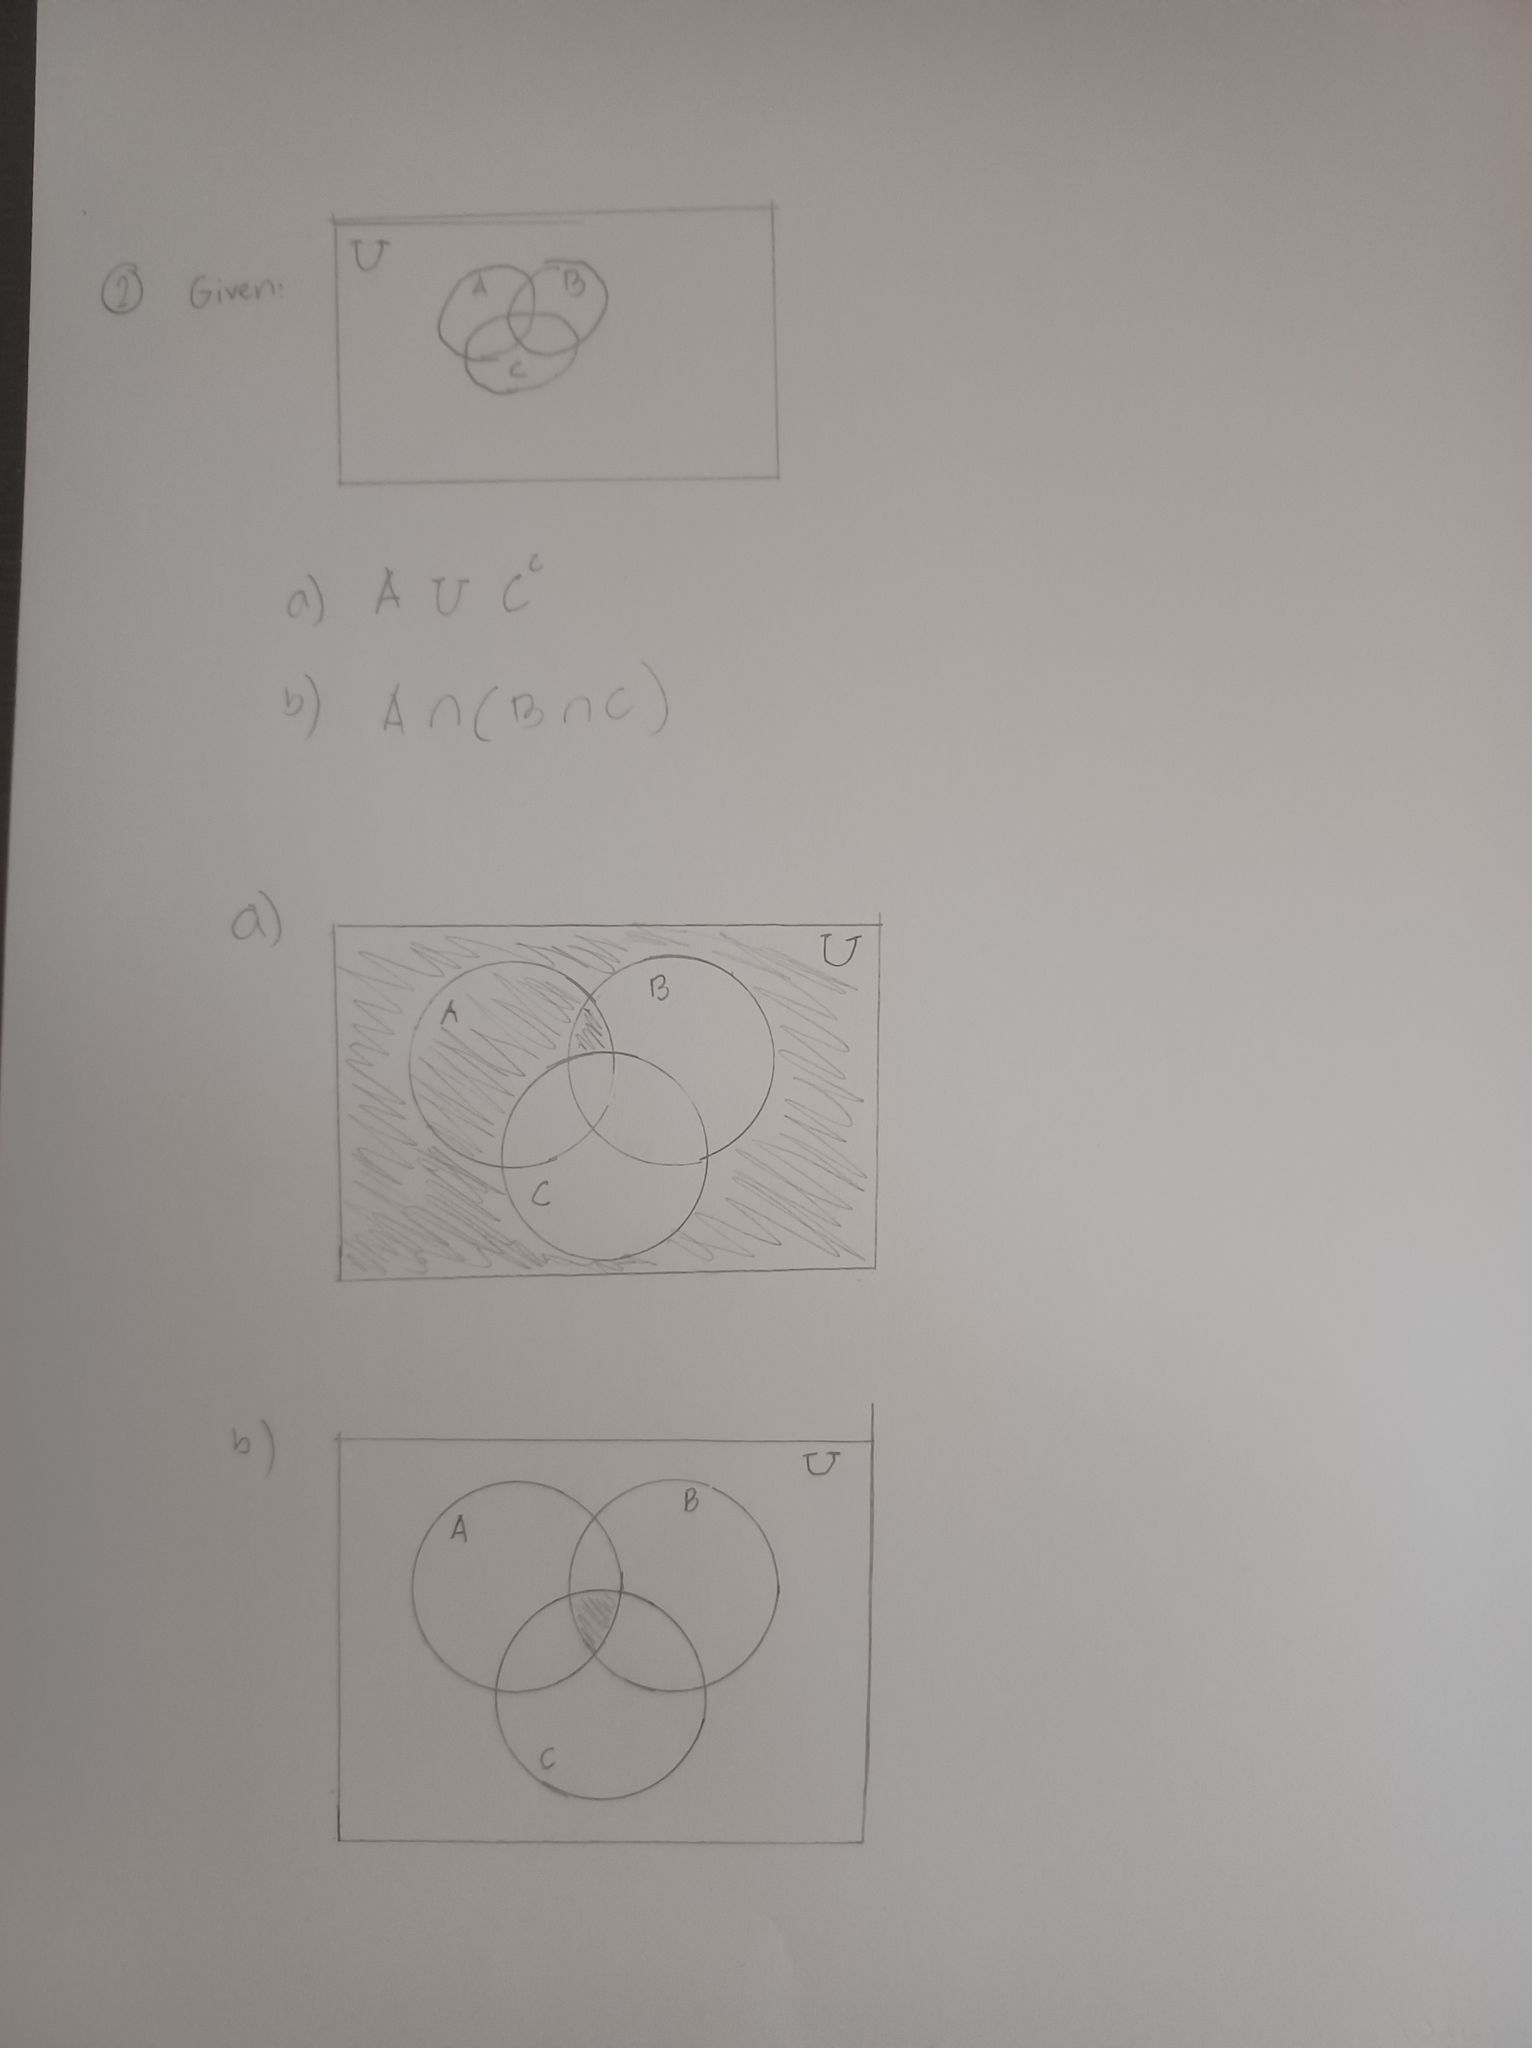 ① Given:
U
A B
C
a) A U Cᶜ
b) A ∩ (B ∩ C)
a)
U
A B
C
b)
U
A B
C